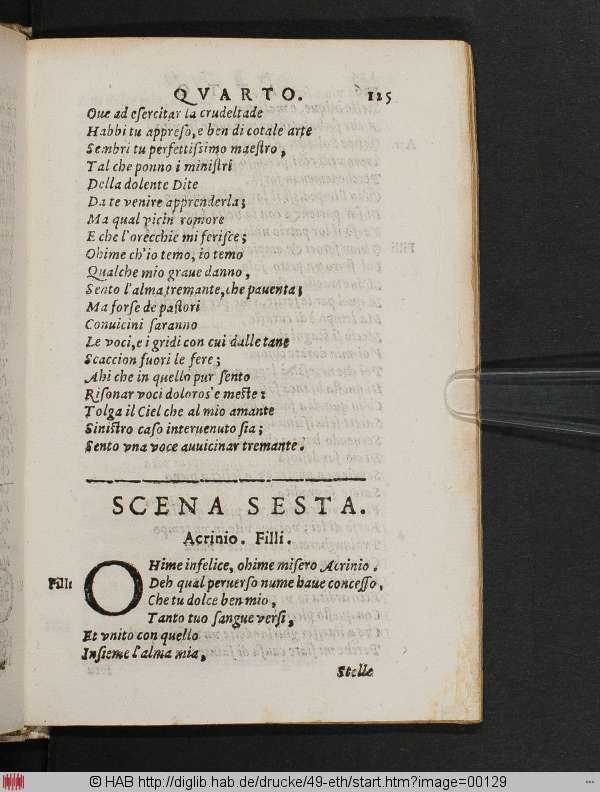 QVARTO. 125
Oue ad esercitar la crudeltade
Habbi tu appreso, e ben di cotale arte
Sembri tu perfettissimo maestro,
Tal che ponno i ministri
Della dolente Dite
Da te venire apprenderla;
Ma qual vicin romore
E che l'orecchie mi ferisce;
Ohime ch'io temo, io temo
Qualche mio graue danno,
Sento l'alma tremante, che pauenta;
Ma forse de pastori
Conuicini saranno
Le voci, e i gridi con cui dalle tane
Scaccion fuori le fere;
Ahi che in quello pur sento
Risonar voci doloros'e meste:
Tolga il Ciel che al mio amante
Sinistro caso interuenuto sia;
Sento vna voce auuicinar tremante.
SCENA SESTA.
Acrinio. Filli.
Filli OHime infelice, ohime misero Acrinio.
Deh qual peruerso nume haue concesso,
Che tu dolce ben mio,
Tanto tuo sangue versi,
Et vnito con quello
Insieme l'alma mia,
Stelle
© HAB http://diglib.hab.de/drucke/49-eth/start.htm?image=00129